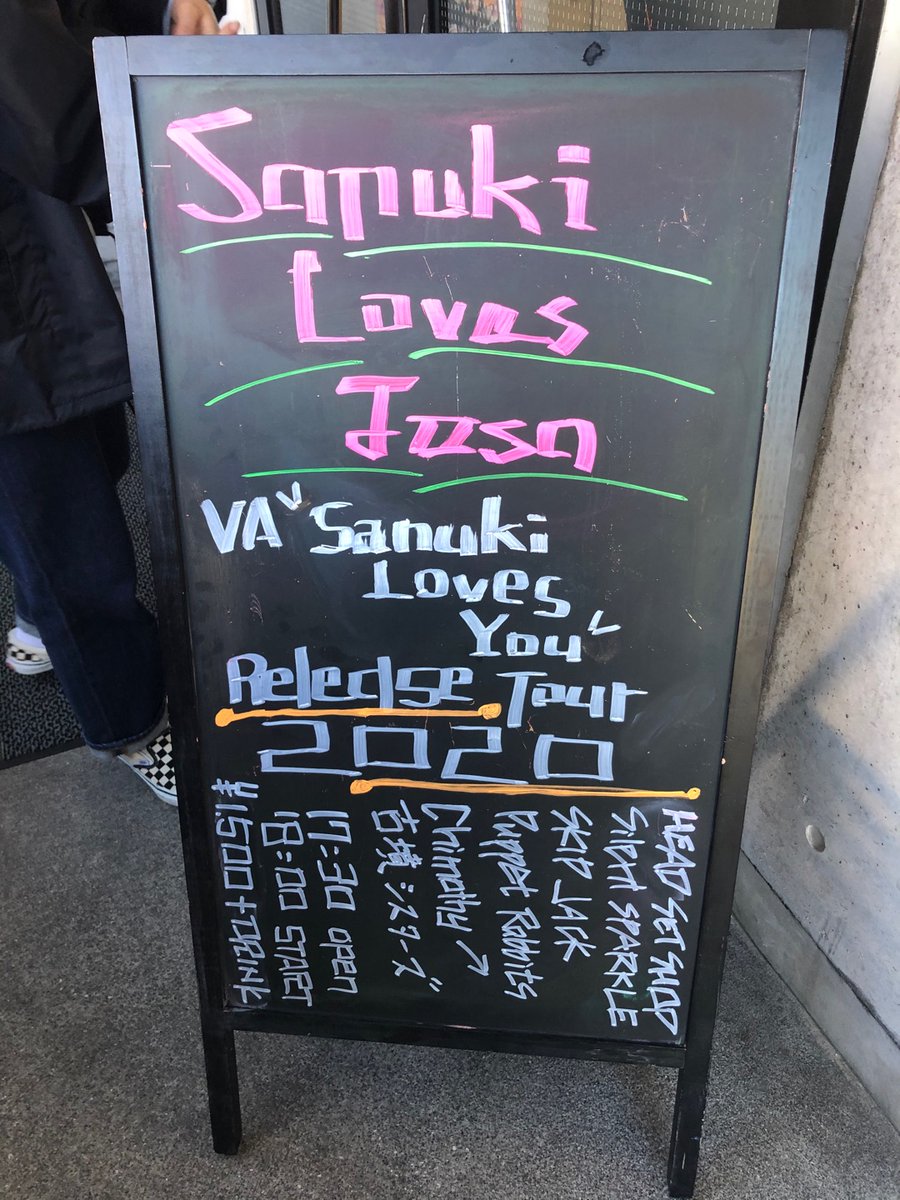 Sanuki
Loves
Tosa
VA "Sanuki
Loves
You"
Release Tour
2020
HEAD SET SHOP
Silent SPARKLE
SKIP JACK
Puppet Rabbits
Chimothy→
古墳シスターズ
17:30 open
18:00 START
¥1,500+DRINK